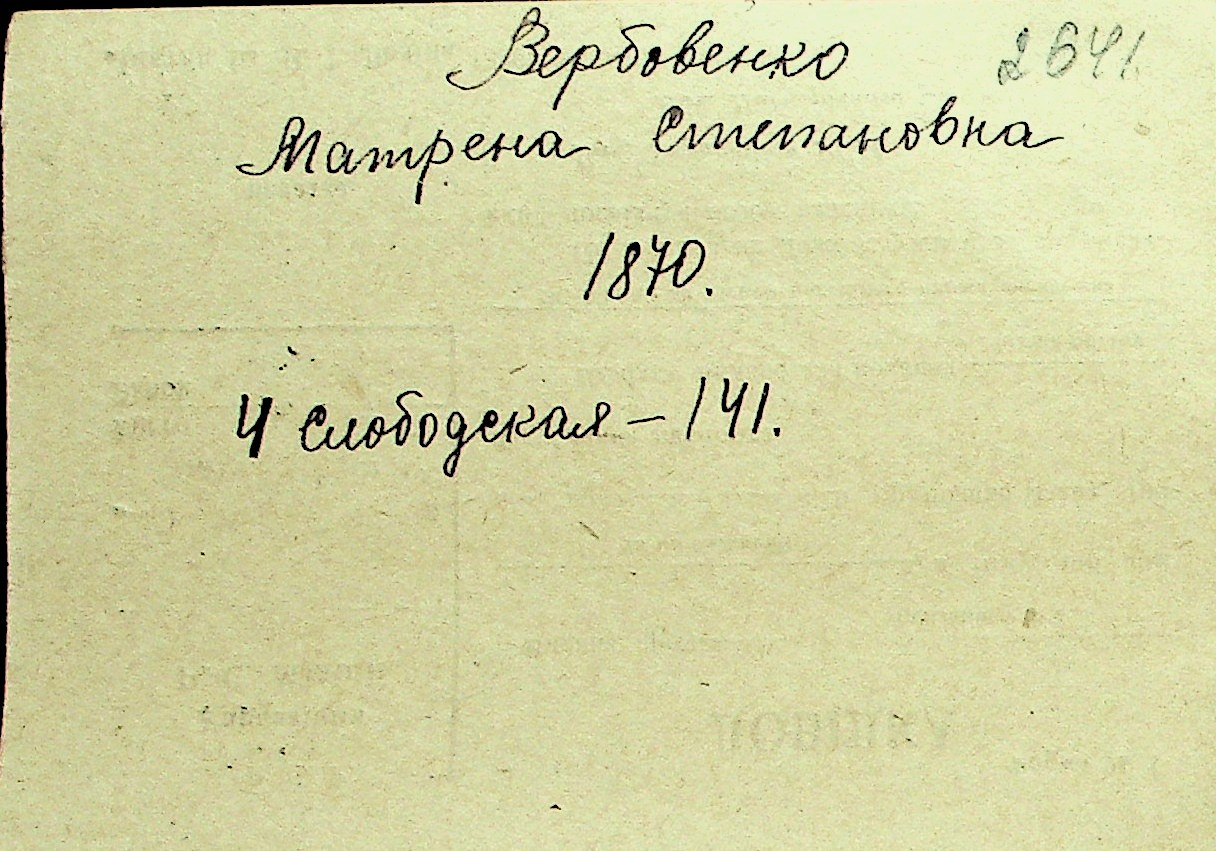 Вербовенко 2641.
Матрена Степановна
1870.
4 Слободская – 141.